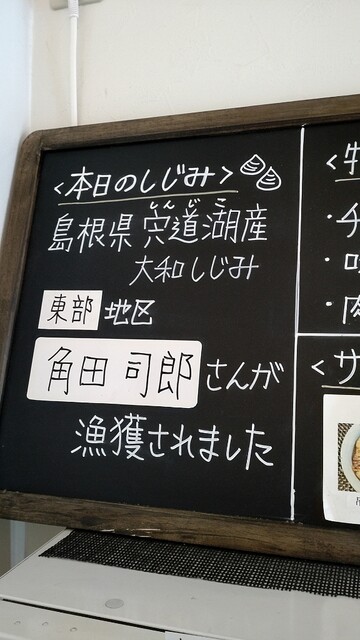 <本日のしじみ>
しんじこ
島根県 宍道湖産
大和しじみ
東部 地区
角田 司郎 さんが
漁獲されました
<サ